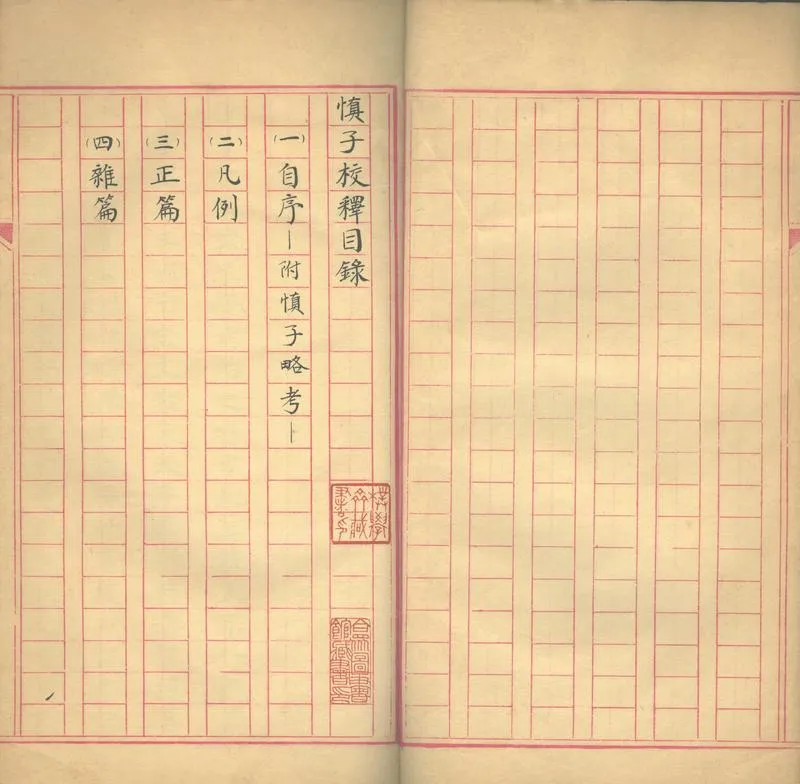 慎子校釋目錄
(一)自序—附慎子略考—
(二)凡例
(三)正篇
(四)雜篇